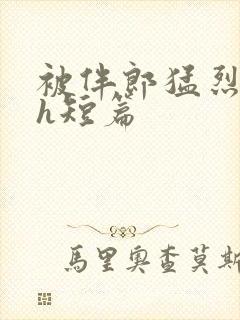 被伴郎猛烈
h短篇
馬里奧查莫斯